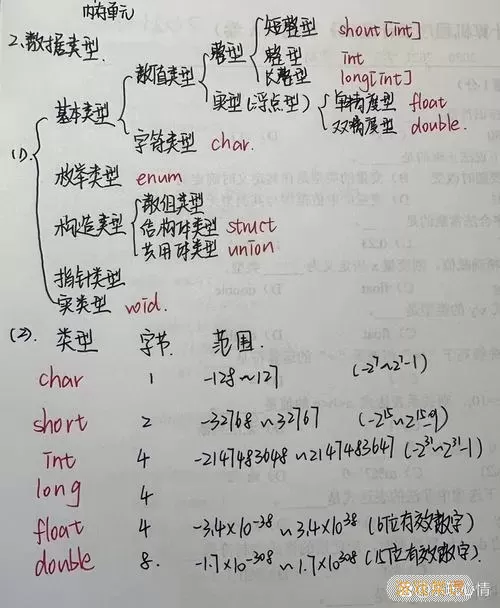 内存单元
2、数据类型.
(1).
基本类型
数值类型
整型
短整型 shout[int]
整型 int
长整型 long[int]
实型(浮点型)
单精度型 float
双精度型 double.
字符类型 char.
枚举类型 enum
构造类型
数组类型
结构体类型 struct
共用体类型 union
指针类型
实类型 void.
(2). 类型 字节 范围.
char 1 -128~127 (-2^7~2^7-1)
short 2 -32768~32767 (-2^15~2^15-1)
int 4 -2147483648~2147483647 (-2^31~2^31-1)
long 4
float 4 -3.4×10^-38~3.4×10^38 (6位有效数字)
double 8. -1.7×10^-308~1.7×10^308 (15位有效数字).